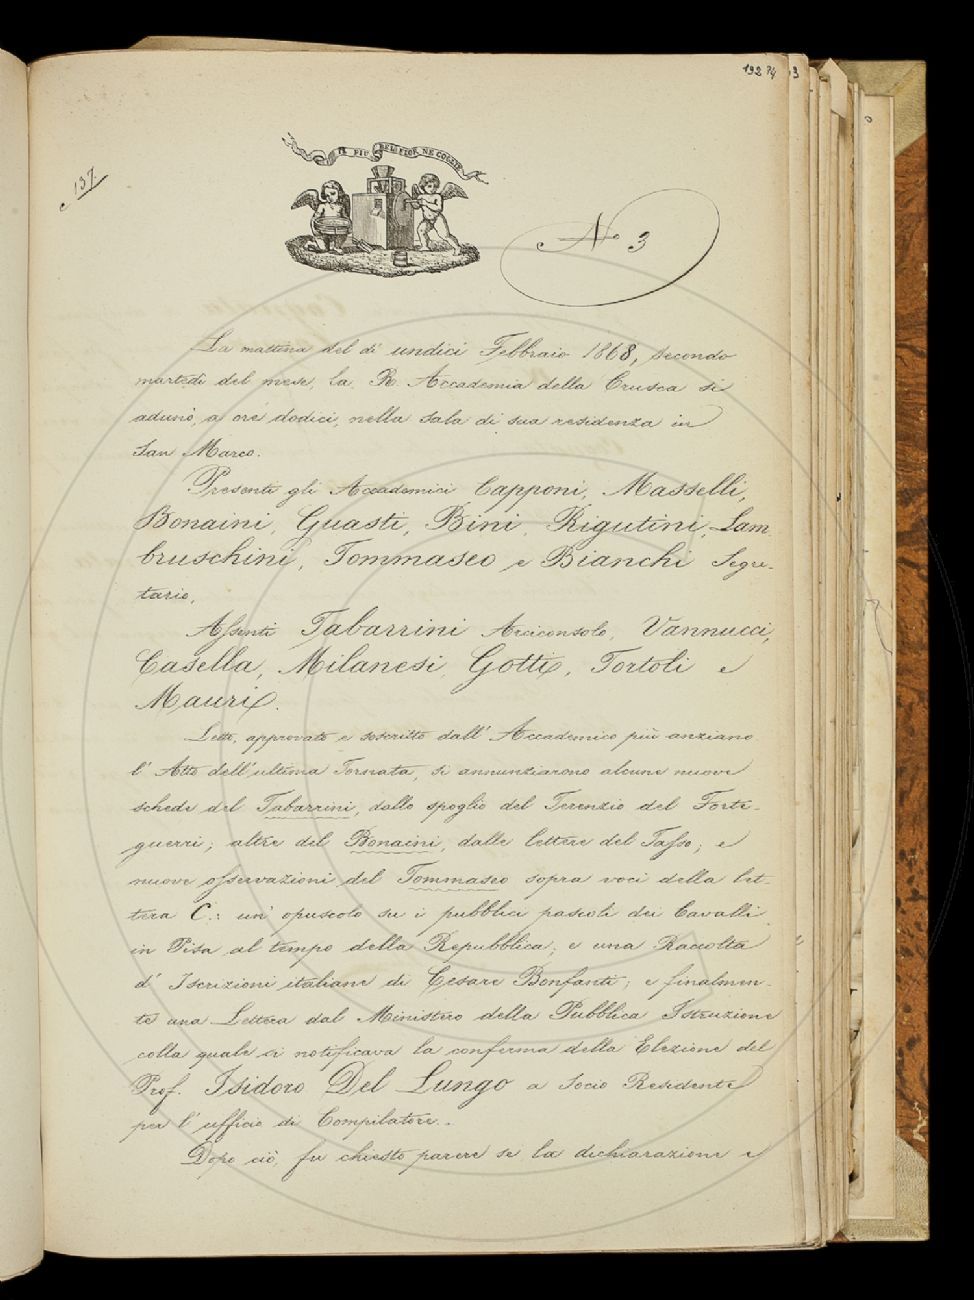 192 94
93
137.
IL PIÙ BEL FIOR NE COGLIE
N.o 3
La mattina del dì undici Febbraio 1868, secondo
martedì del mese, la R. Accademia della Crusca si
adunò, a ore dodici, nella sala di sua residenza in
San Marco.
Presenti gli Accademici Capponi, Masselli,
Bonaini, Guasti, Bini, Rigutini, Lam-
bruschini, Tommaseo e Bianchi Segre-
tario.
Assenti Tabarrini Arciconsolo, Vannucci,
Casella, Milanesi, Gotti, Tortoli e
Mauri.
Letto, approvato e soscritto dall' Accademico più anziano
l' Atto dell' ultima Tornata, si annunziarono alcune nuove
schede del Tabarrini, dallo spoglio del Terenzio del Forte-
guerri; altre del Bonaini, dalle lettere del Tasso; e
nuove osservazioni del Tommaseo sopra voci della let-
tera C.: un' opuscolo su i pubblici pascoli dei Cavalli
in Pisa al tempo della Repubblica; e una Raccolta
d' Iscrizioni italiane di Cesare Bonfanti; e finalmen-
te una Lettera dal Ministero della Pubblica Istruzione
colla quale si notificava la conferma della Elezione del
Prof. Isidoro Del Lungo a Socio Residente
per l' ufficio di Compilatore.
Dopo ciò, fu chiesto parere se la dichiarazione e